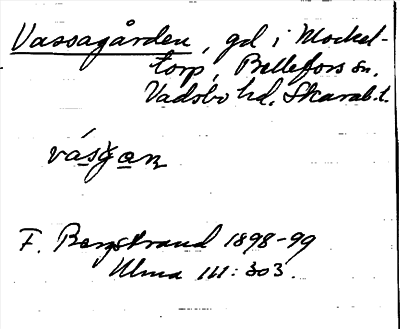 Vassagården, gd i Mockel-
torp, Bellefors sn,
Vadsbo hd. Skarab.l.
F. Bergstrand 1898-99
Ulma 111:303.